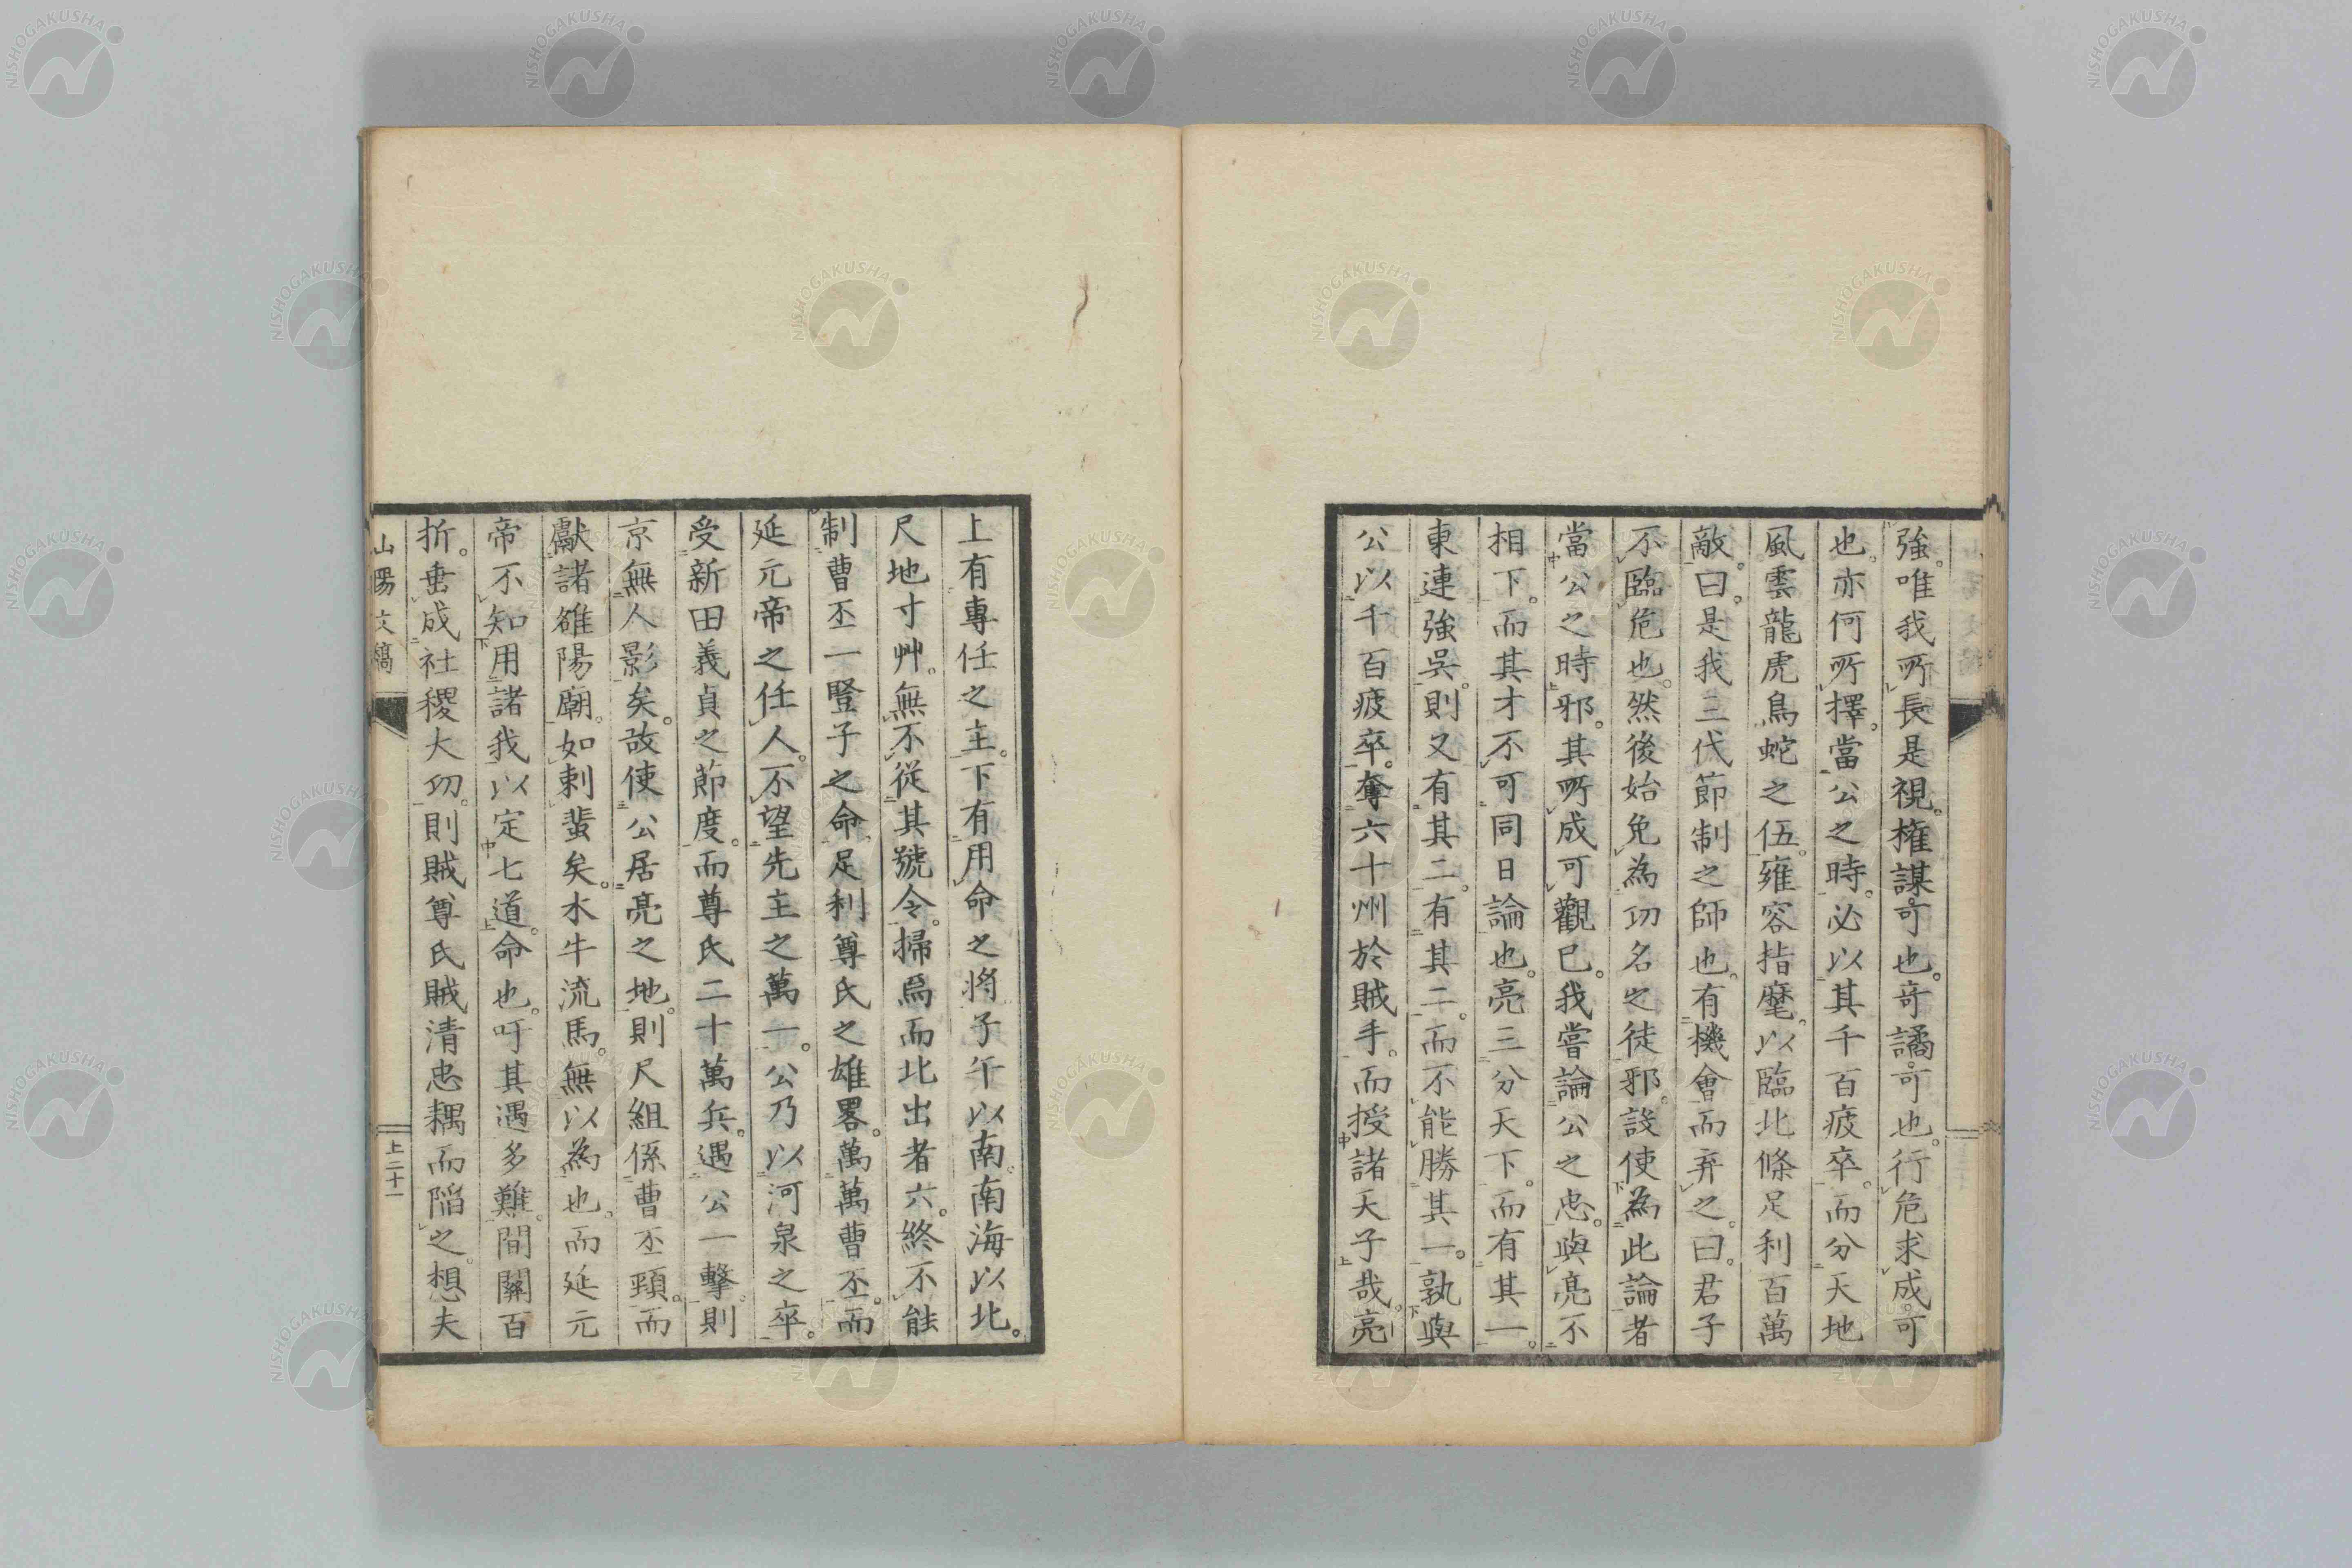 強。唯我所長是視。權謀可也。奇譎可也。行危求成。可
也。亦何所擇。當公之時。必以其千百疲卒。而分天地
風雲龍虎鳥蛇之伍。雍容指麾。以臨北條足利百萬
敵。曰。是我三代節制之師也。有機會而弃之。曰。君子
不臨危也。然後始免為功名之徒邪。設使為此論者
當公之時邪。其所成可觀已。我嘗論公之忠。與亮不
相下。而其才不可同日論也。亮三分天下。而有其一。
東連強吳。則又有其二。有其二。而不能勝其一。孰與
公以千百疲卒。奪六十州於賊手。而授諸天子哉。亮
上有專任之主。下有用命之將。子午以南。南海以北。
尺地寸艸。無不從其號令。掃爲而北出者六。終不能
制曹丕一豎子之命。足利尊氏之雄畧。萬萬曹丕。而
延元帝之任人。不望先主之萬一。公乃以河泉之卒。
受新田義貞之節度。而尊氏二十萬兵。遇公一擊。則
京無人影矣。故使公居亮之地。則尺組係曹丕頸。而
獻諸雒陽廟。如刺蜚矣。木牛流馬。無以為也。而延元
帝不知用諸我以定七道。命也。吁其遇多難。間關百
折。垂成社稷大功。則賊尊氏賊清忠耦而陷之。想夫
山陽文稿
上二十一
NISHOGAKUSHA